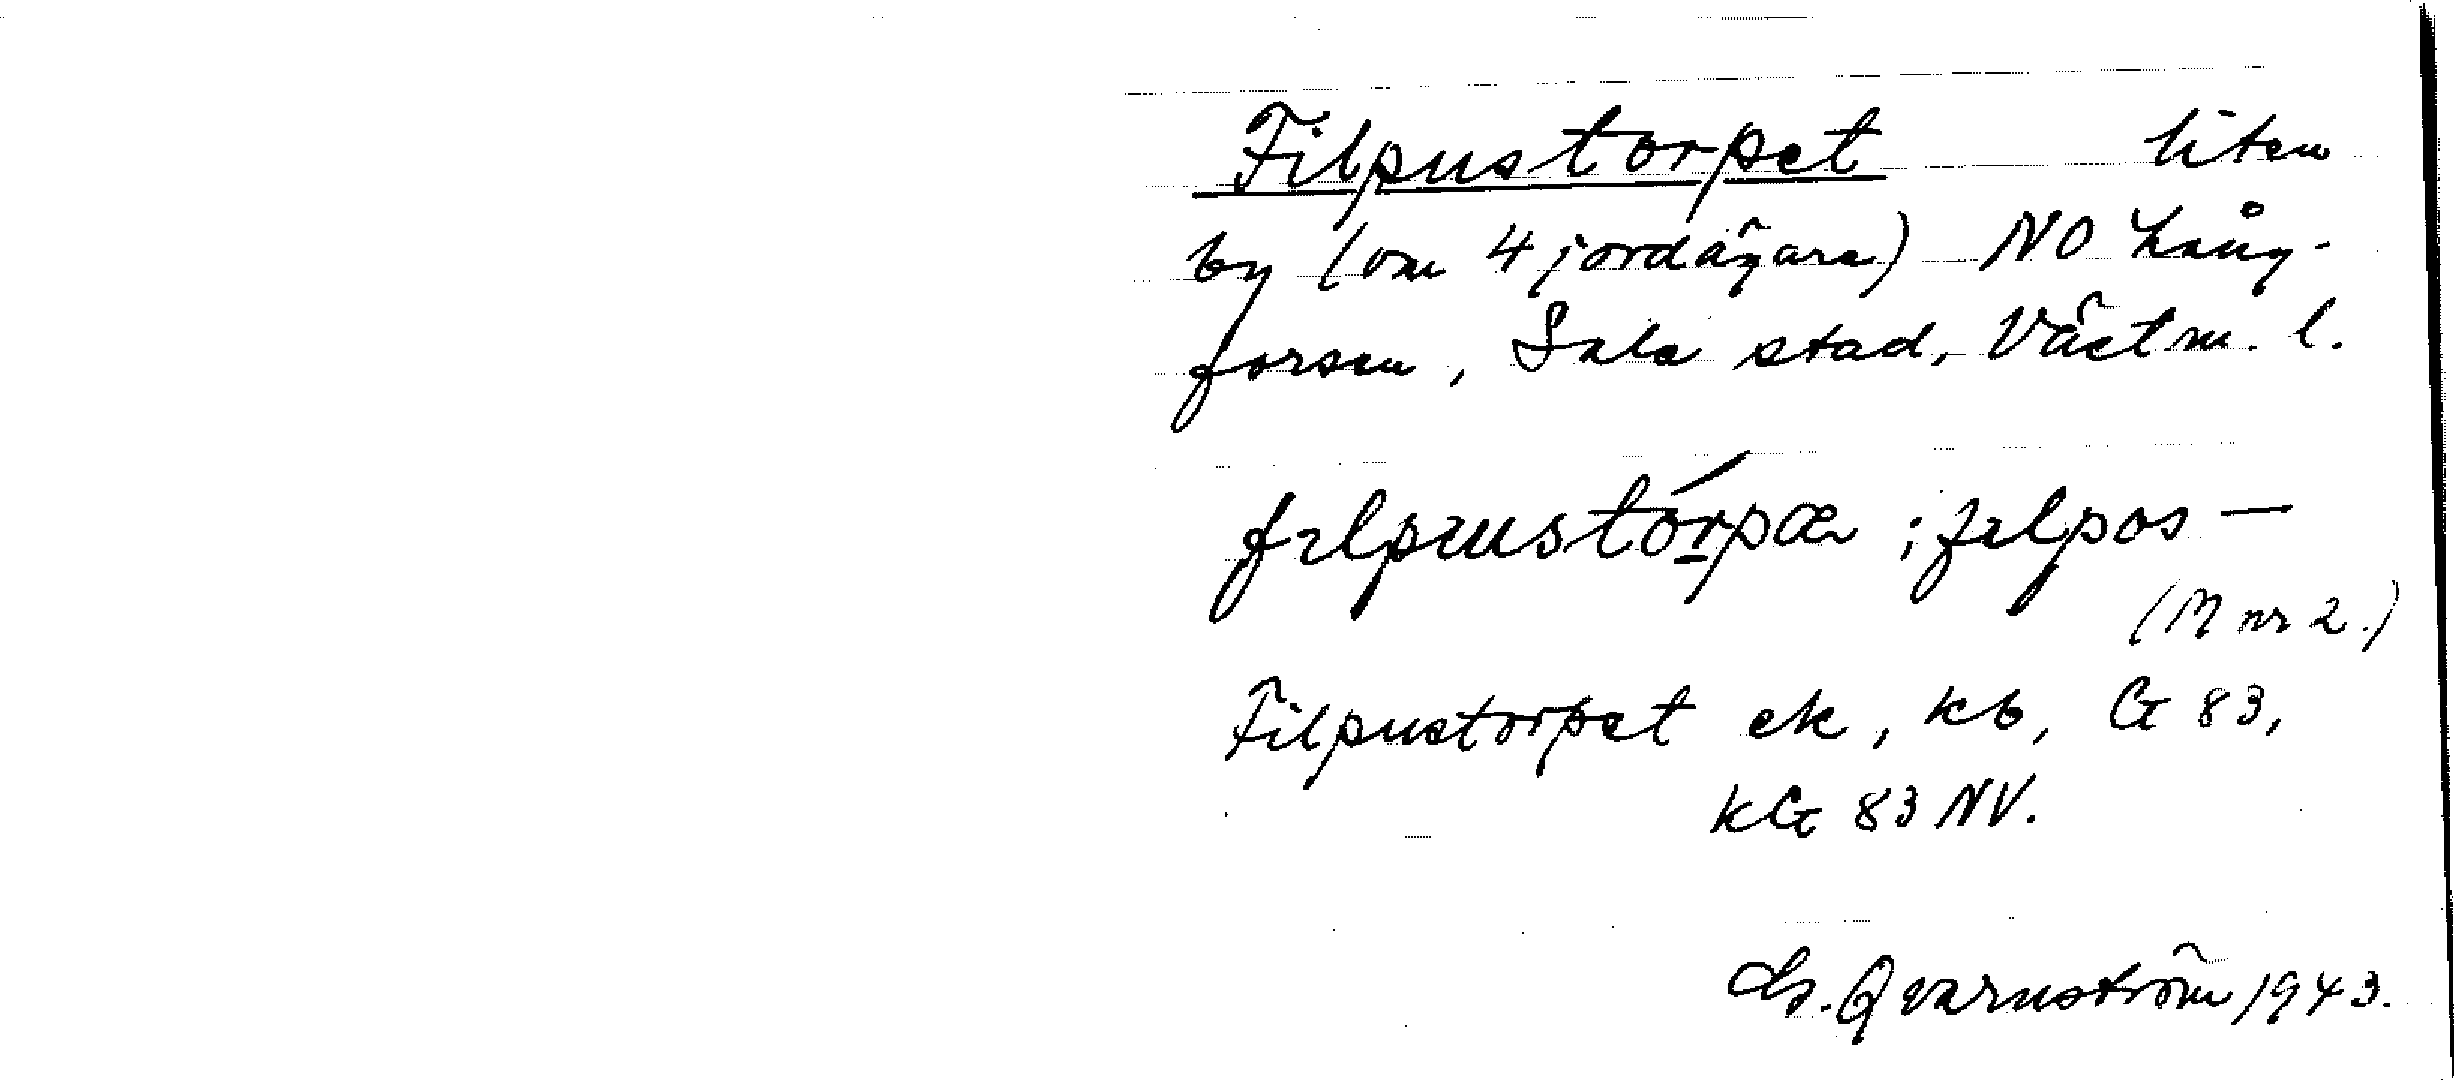 Filpustorpet liten
by (om 4 jordägare) NO Lång-
forsen, Sala stad, Västm. l.
fılpustórpæ ; fılpos—
(M nr 2.)
Filpustorpet ek, kb, G 83,
kG 83 NV.
G. Qvarnström 1943.